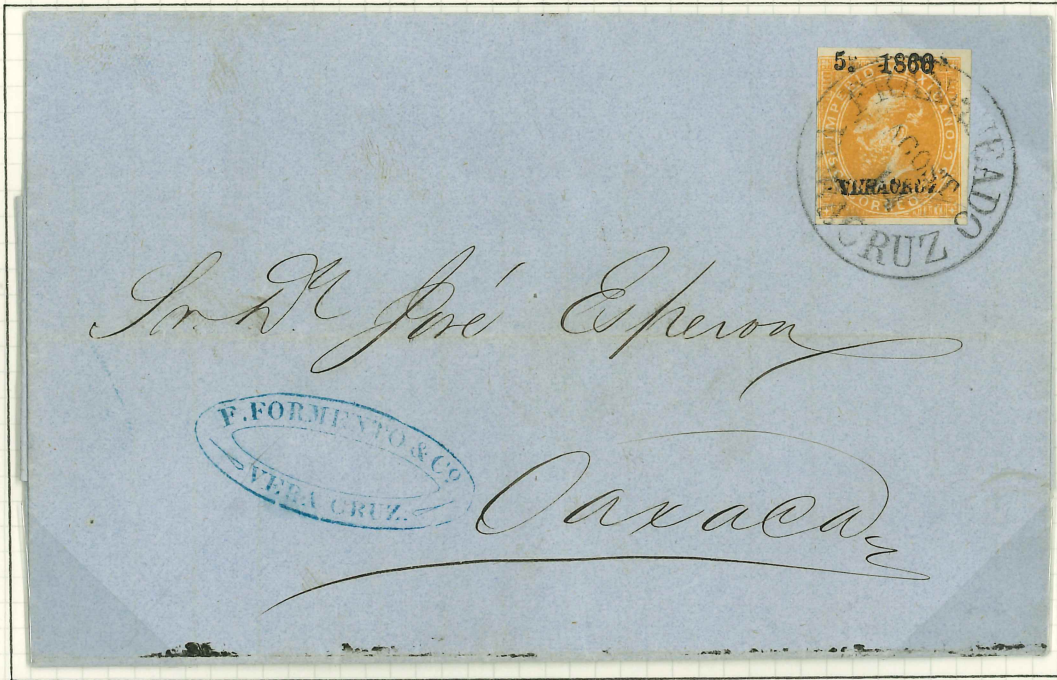 5. 1866
IMPERIO MEXICANO
VERACRUZ
CORREO
FRANQUEADO
AGO
VERACRUZ
Sr. Dn José Esperon
F. FORMENTO & Co
VERA CRUZ.
Oaxaca